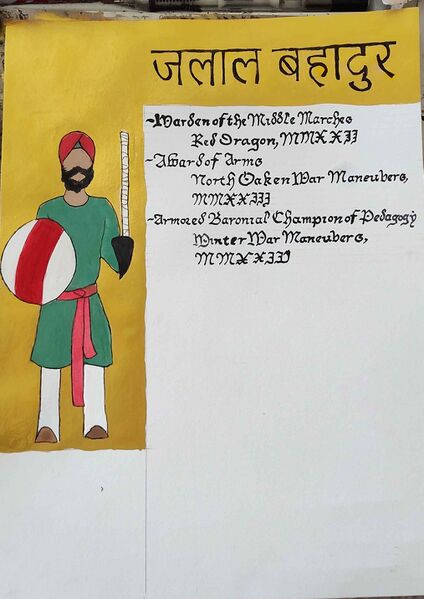 जलाल बहादुर
-Warden of the Middle Marches
Red Dragon, MMXXII
-Award of Arms
North Oaken War Maneuvers,
MMXXIII
-Armored Baronial Champion of Pedagogy
Winter War Maneuvers,
MMXXIV